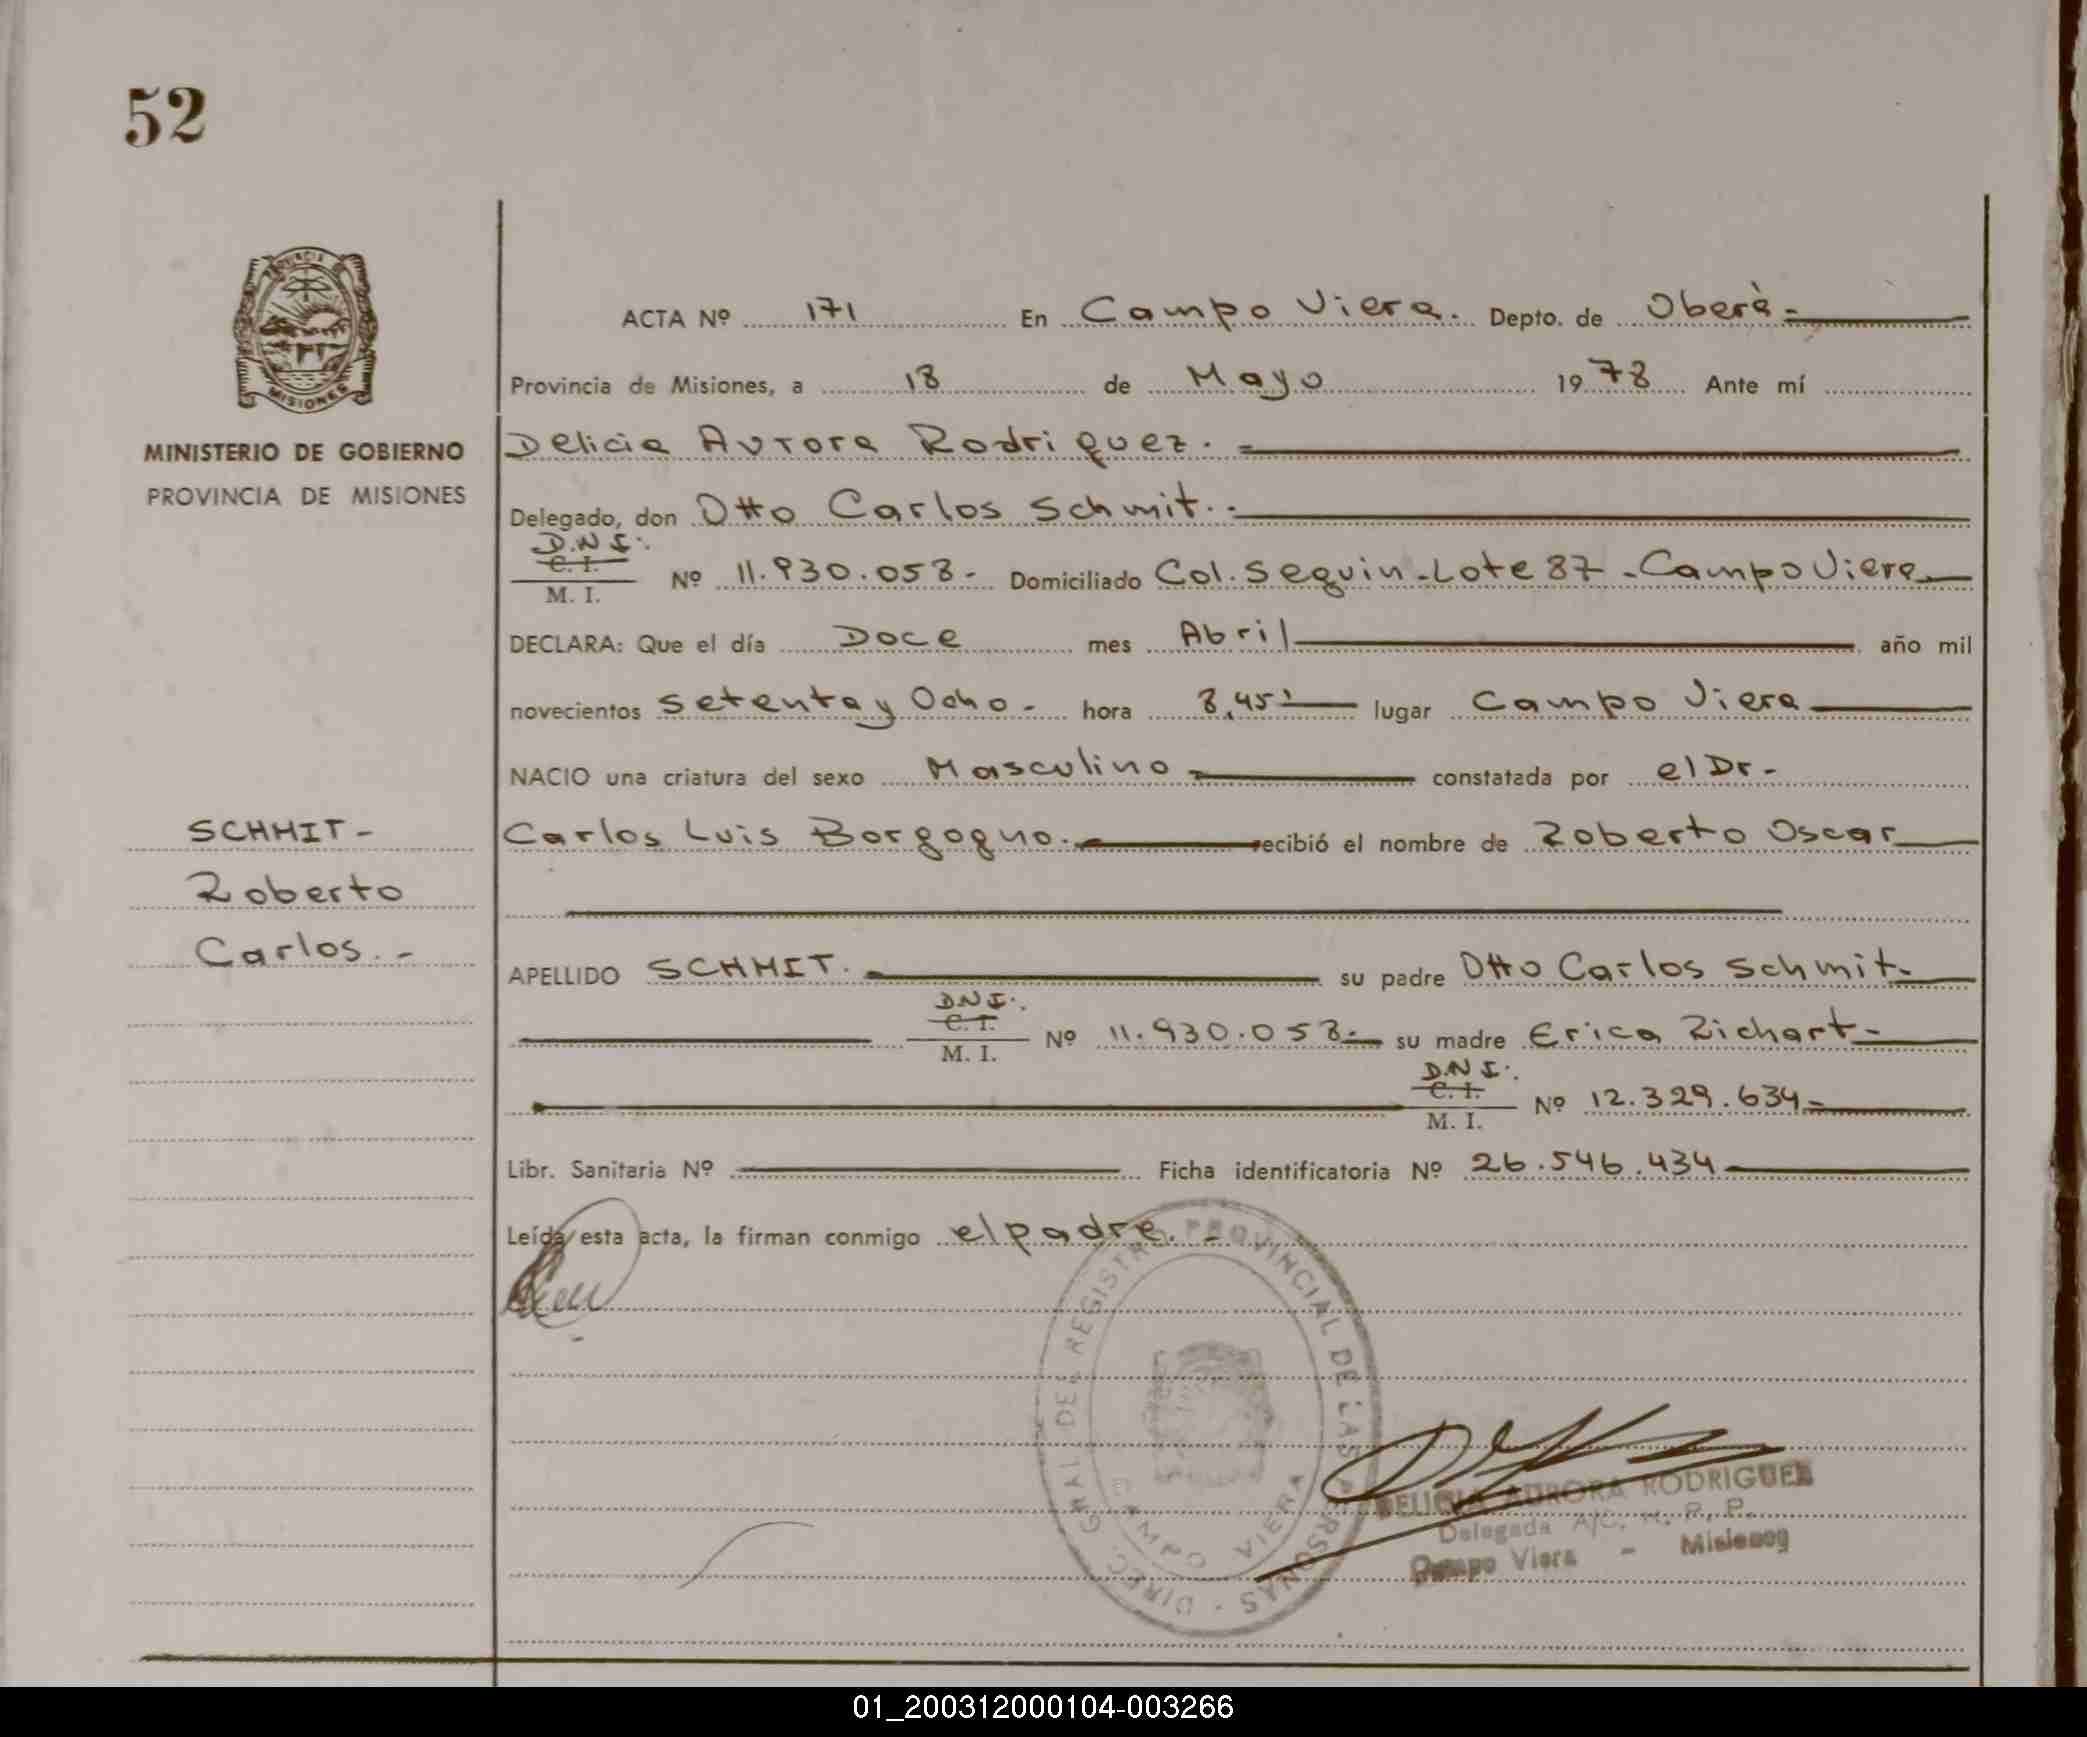 52
PROVINCIA
MISIONES
MINISTERIO DE GOBIERNO
PROVINCIA DE MISIONES
SCHMIT-
Roberto
Carlos.-
ACTA Nº 171 En Campo Viera. Depto. de Oberà-
Provincia de Misiones, a 18 de Mayo 1978 Ante mí
Delicia Aurora Rodriguez.-
Delegado, don Otto Carlos Schmit.-
D.N.I.
C. I.
M. I. Nº 11.930.058- Domiciliado Col. Seguin-Lote 87-Campo Viera
DECLARA: Que el día Doce mes Abril año mil
novecientos setenta y Ocho- hora 8,45' lugar Campo Viera
NACIO una criatura del sexo Masculino constatada por el Dr-
Carlos Luis Borgogno. recibió el nombre de Roberto Oscar
APELLIDO SCHMIT. su padre Otto Carlos Schmit-
D.N.I.
C. I.
M. I. Nº 11.930.058- su madre Erica Richart-
D.N.I.
C. I.
M. I. Nº 12.329.634-
Libr. Sanitaria Nº Ficha identificatoria Nº 26.546.434
Leída esta acta, la firman conmigo el padre.-
DIREC. GRAL. DEL REGISTRO PROVINCIAL DE LAS PERSONAS
CAMPO VIERA
DELICIA AURORA RODRIGUEZ
Delegada A/C. R. P. P.
Campo Viera - Misiones
01_200312000104-003266